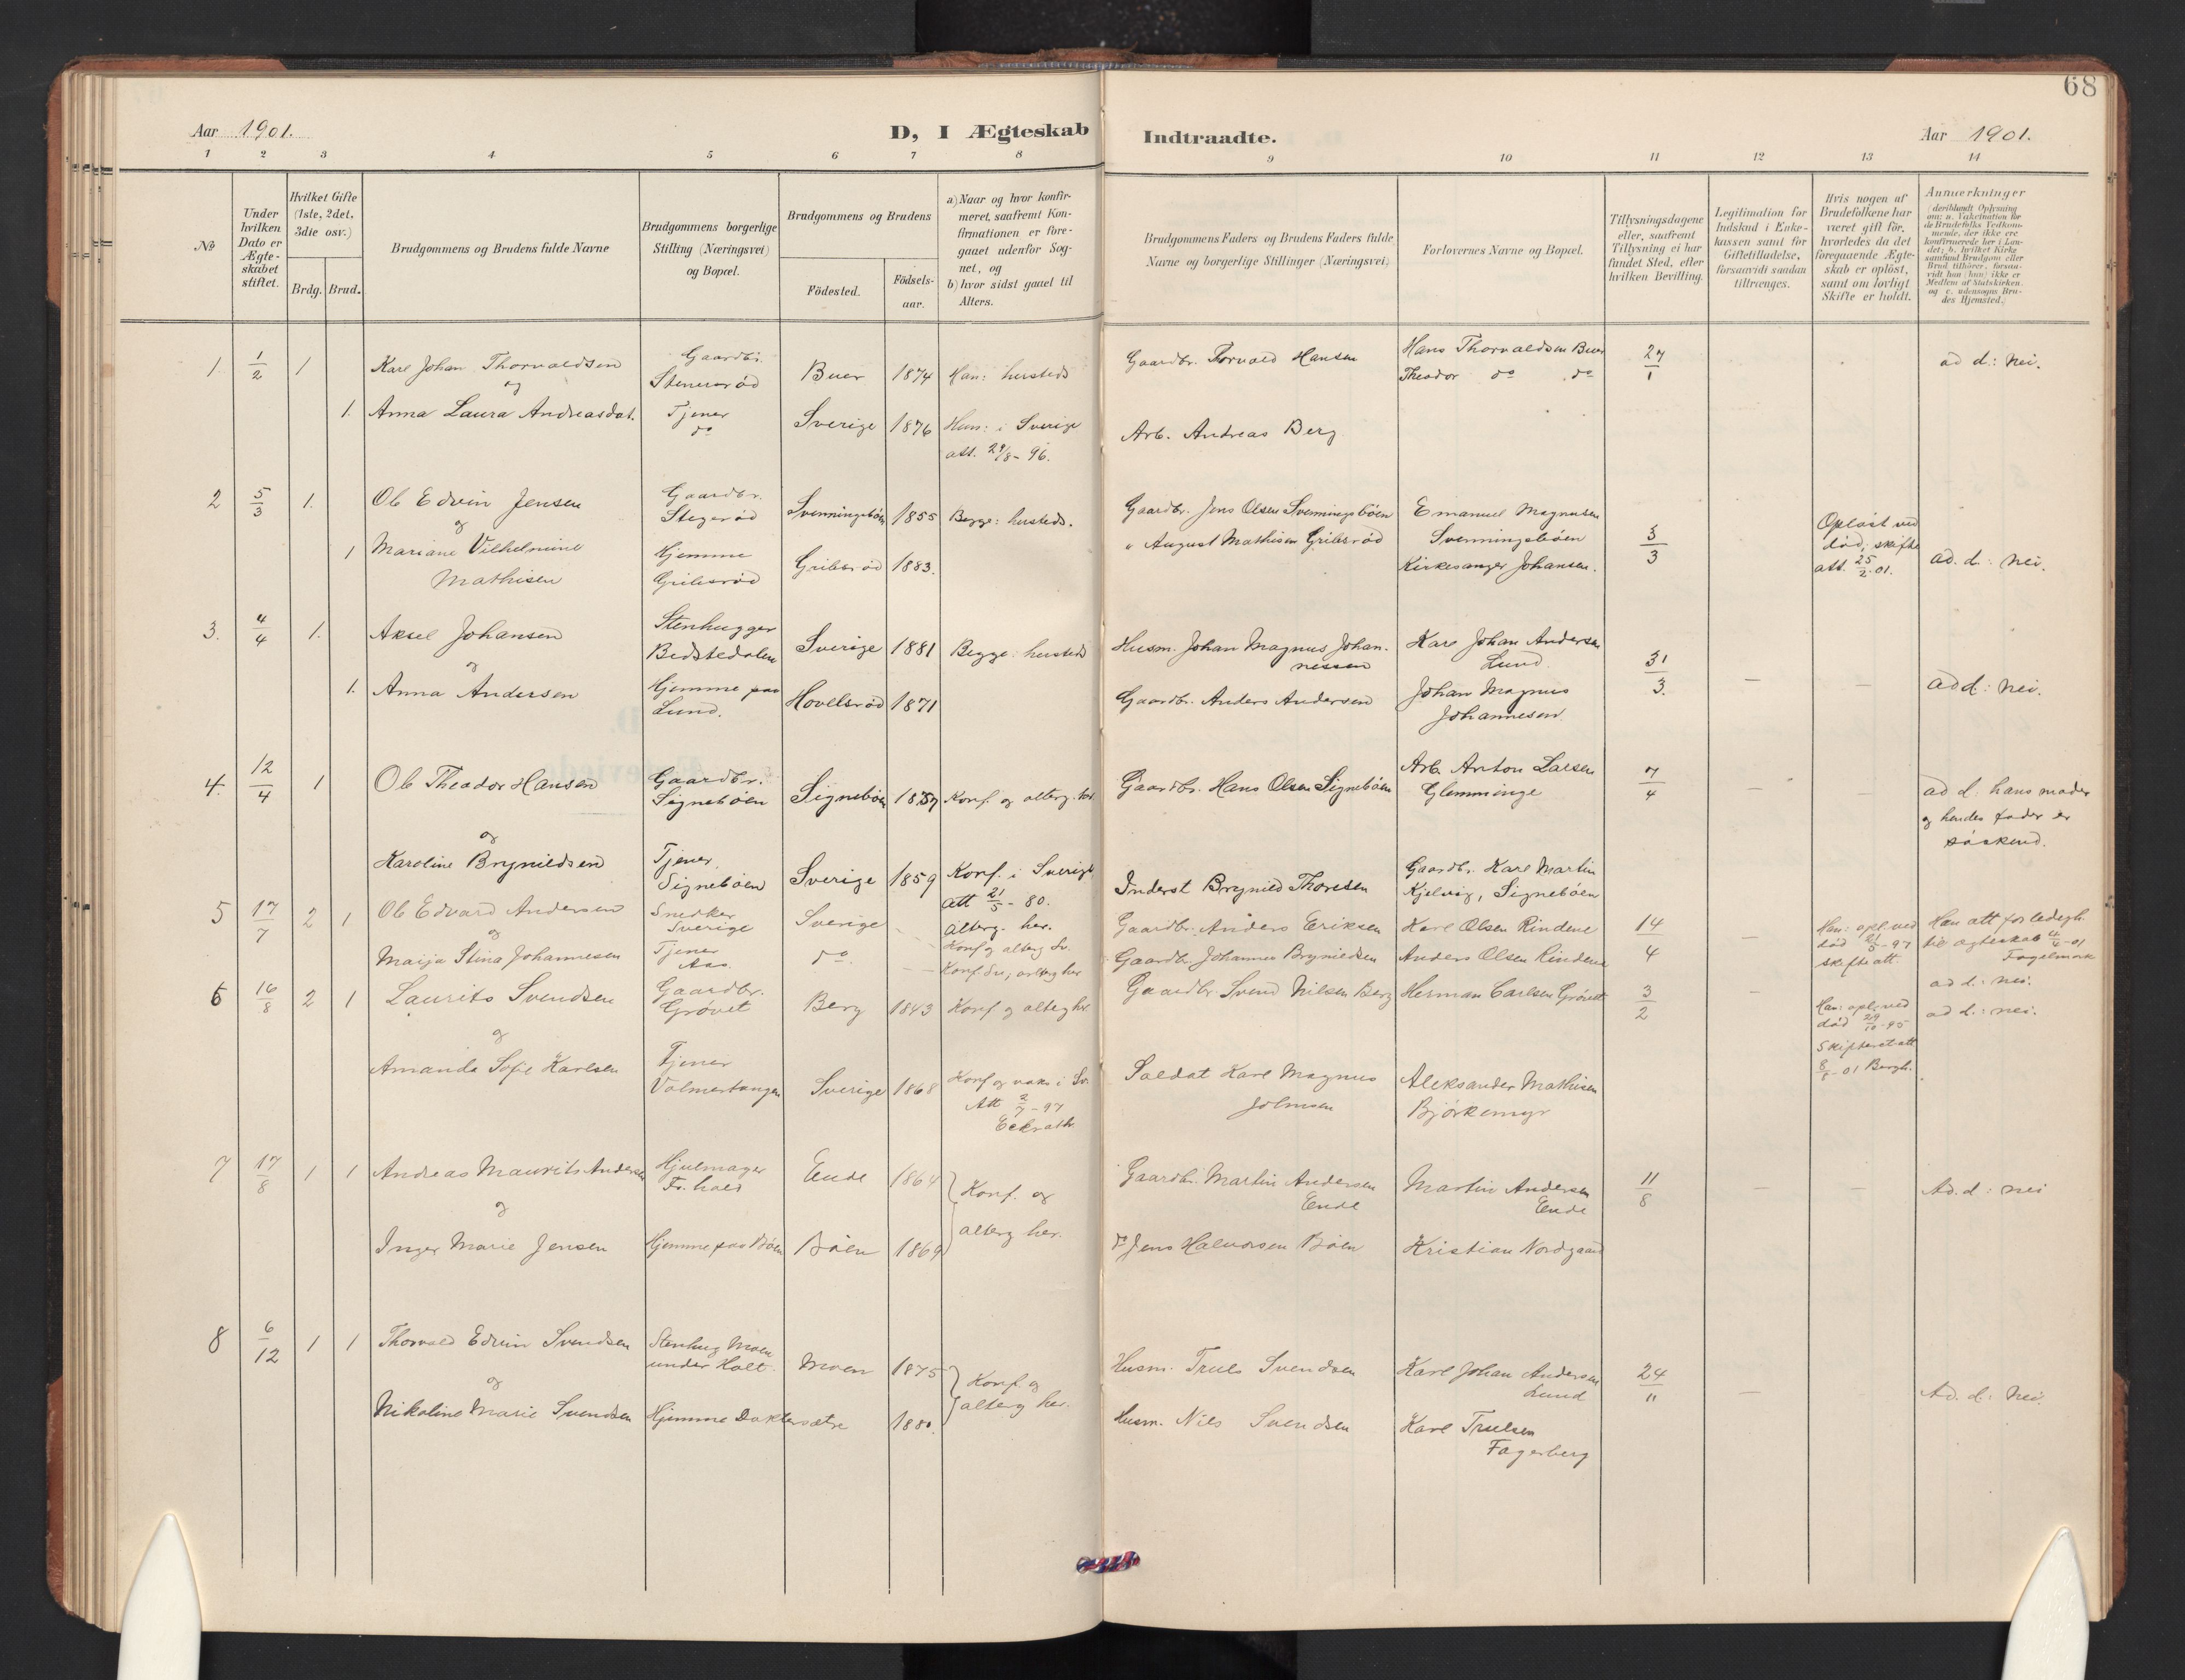 68
Aar 1901.
D, I Ægteskab
Indtraadte.
Aar 1901.
1 2 3 4 5 6 7 8
9 10 11 12 13 14
No
Under hvilken Dato er Ægteskabet stiftet.
Hvilket Gifte (1ste, 2det, 3die osv.)
Brdg. Brud.
Brudgommens og Brudens fulde Navne
Brudgommens borgerlige Stilling (Næringsvei) og Bopæl.
Brudgommens og Brudens
Födested.
Födselsaar.
a) Naar og hvor konfirmeret, saafremt Konfirmationen er foregaaet udenfor Sognet, og
b) hvor sidst gaaet til Alters.
Brudgommens Faders og Brudens Faders fulde Navne og borgerlige Stillinger (Næringsvei)
Forlovernes Navne og Bopæl.
Tillysningsdagene eller, saafremt Tillysning ei har fundet Sted, efter hvilken Bevilling.
Legitimation for Indskud i Enkekassen samt for Giftetilladelse, forsaavidt saadan tiltrænges.
Hvis nogen af Brudefolkene har været gift før, hvorledes da det foregaaende Ægteskab er oplöst, samt om lovligt Skifte er holdt.
Anmærkninger (deriblandt Oplysning om: a. Vakcination for de Brudefolks Vedkommende, der ikke ere konfirmerede her i Landet; b. hvilket Kirkesamfund Brudgom eller Brud tilhörer, forsaavidt han (hun) ikke er Medlem af Statskirken. og c. udensogns Brudes Hjemsted.)
1 1/2 1 Karl Johan Thorvaldsen Gaardbr. Stenersrød Buer 1874 Han: hersteds Gaardbr. Torvald Hansen Hans Thorvaldsen Buer 27/1 ad d.: nei.
og Theodor do do
1. Anna Laura Andreasdat. Tjener do Sverige 1876 Hun: i Sverige Arb. Andreas Berg
att. 29/8 - 96.
2 5/3 1. Ole Edvin Jensen Gaardbr. Stegerød Svenningsbøen 1855 Begge: hersteds. Gaardbr. Jens Olsen Svenningsbøen Emanuel Magnusen Svenningsbøen 3/3 Opløst ved død; skifte att. 25/2-01. ad. d.: nei.
og
1 Mariane Vilhelmine Mathisen Hjemme Gribsrød Gribsrød 1883. " August Mathisen Gribsrød Kirkesanger Johansen.
3. 4/4 1. Aksel Johansen Stenhugger Bedstedalen Sverige 1881 Begge: hersteds Husm. Johan Magnus Johannessen Karl Johan Andersen Lund. 31/3. — — ad d.: nei.
og
1. Anna Andersen Hjemme paa Lund. Hovelsrød 1871 Gaardbr. Anders Andersen Johan Magnus Johannesen.
4. 12/4 1 Ole Theodor Hansen Gaardbr. Signebøen Signebøen 1857 Konf. og alterg. her. Gaardbr. Hans Olsen Signebøen Arb. Anton Larsen Glemminge 7/4 — — ad d. hans moder
og hendes fader er
søskend.
og
Karoline Brynildsen Tjener, Signebøen Sverige 1859 Konf. i Sverige att 21/5 - 80. alterg. her. Inderst Brynild Thoresen Gaardbr. Karl Martin Kjelvig, Signebøen
5 17/7 2 1 Ole Edvard Andersen Snedker Sverige Sverige - - Konf og alterg Sv. Gaardbr. Anders Eriksen Karl Olsen Rindene 14 — Han: opl. ved død 21/5-97 skifteatt. Han att for ledigh. til ægteskab 4/6-01
og
Maija Stina Johannesen Tjener Aas. do. - - Konf Sv, alterg her Gaardbr Johannes Brynildsen Anders Olsen Rindene 4 ad d.: nei.
6 16/8 2 1 Laurits Svendsen Gaardbr. Grøvet Berg 1843 Konf og alterg her. Gaardbr. Svend Nilsen Berg Herman Carlsen Grøvet 3/2 — Han: opl. ved død 29/10-95 Skifteretsatt 8/8-01 Bergh. ad d.: nei.
og
Amanda Sofie Karlsen Tjener Volmertangen Sverige 1868 Konf og vaks i Sv. Att 2/7-97 Soldat Karl Magnus Johnsen Aleksander Mathisen Bjørkemyr
7 17/8 1 1 Andreas Maurits Andersen Hjulmager Fr.hald Ende 1864 Konf. og alterg her. Gaardbr. Martin Andersen Ende Martin Andersen Ende 11/8 — — Ad. d: nei
og
Inger Marie Jensen Hjemme paa Bøen Bøen 1869 do Jens Halvorsen Bøen Kristian Nordgaard
8 6/12 1 1 Thorvald Edvin Svendsen Stenhug Moen under Holt. Moen 1875 Konf. og alterg her. Husm. Truls Svendsen Karl Johan Andersen Lund 24/11 — Ad. d: nei.
og
Nikoline Marie Svendsen Hjemme Doktersætre 1880. Husm. Nils Svendsen Karl Trulsen Fagerberg